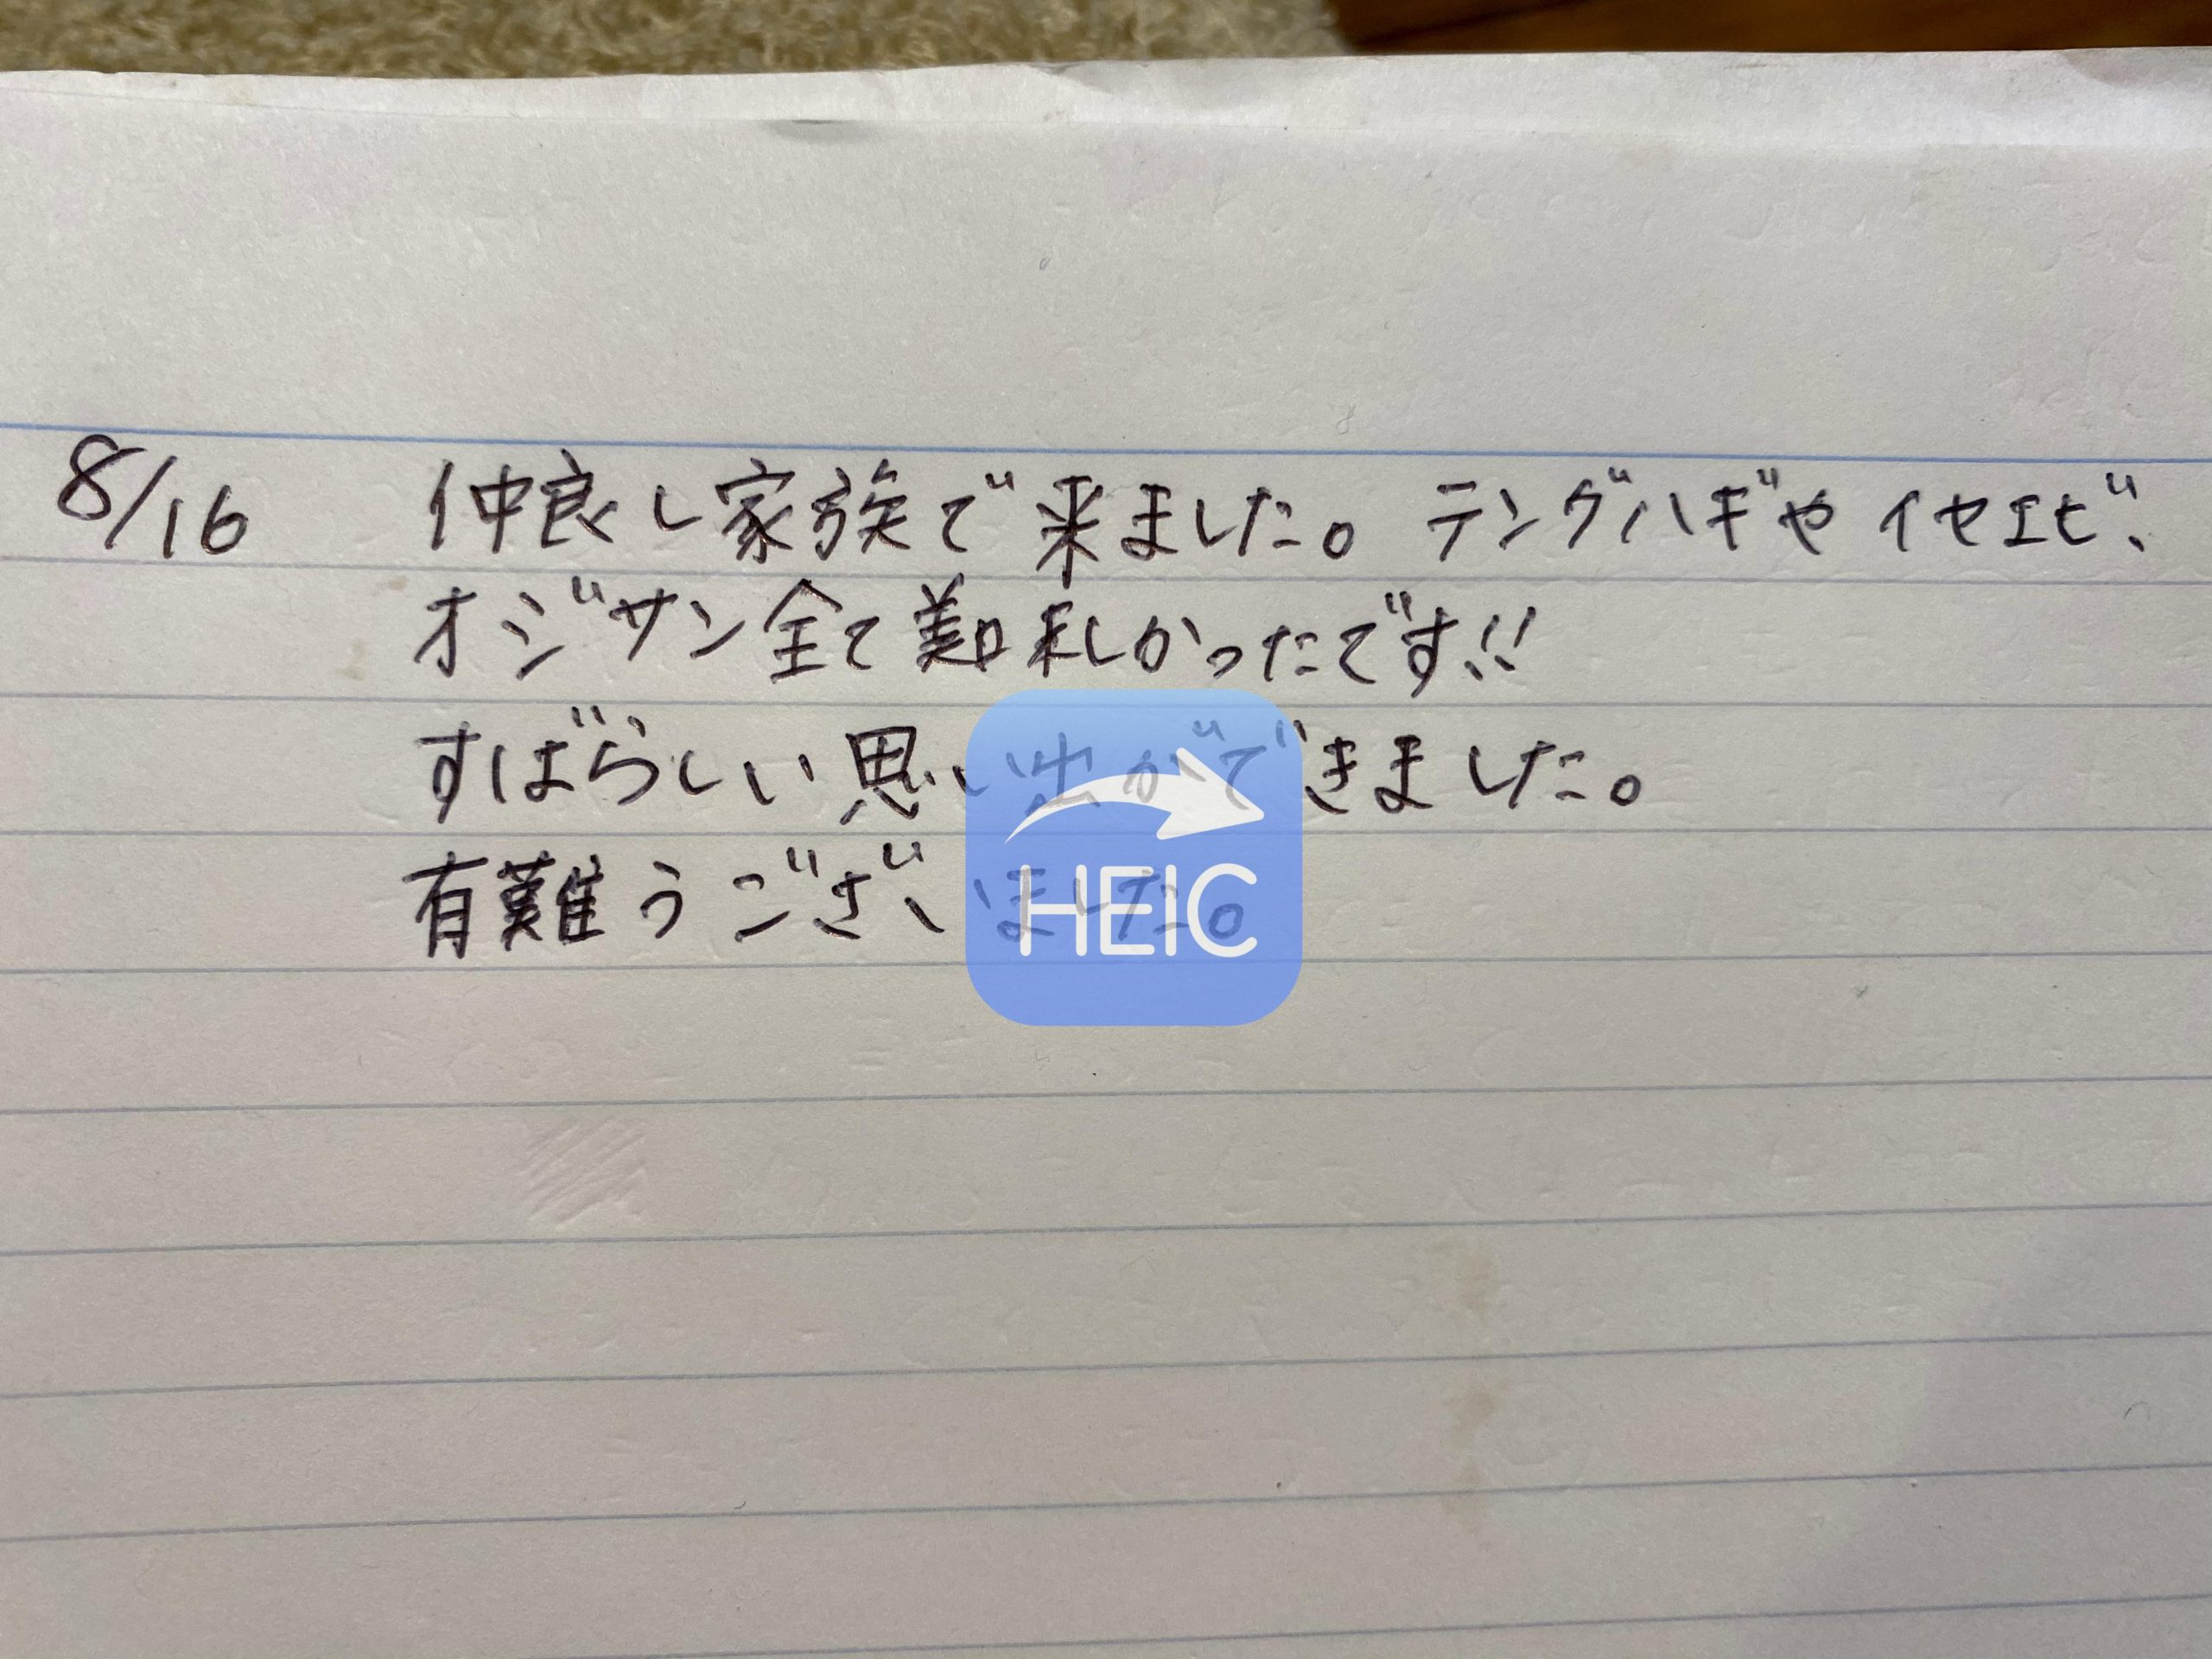 8/16 仲良し家族で来ました。テングハギやイセエビ、
オジサン全て美味しかったです!!
すばらしい思い出ができました。
有難うございました。
HEIC